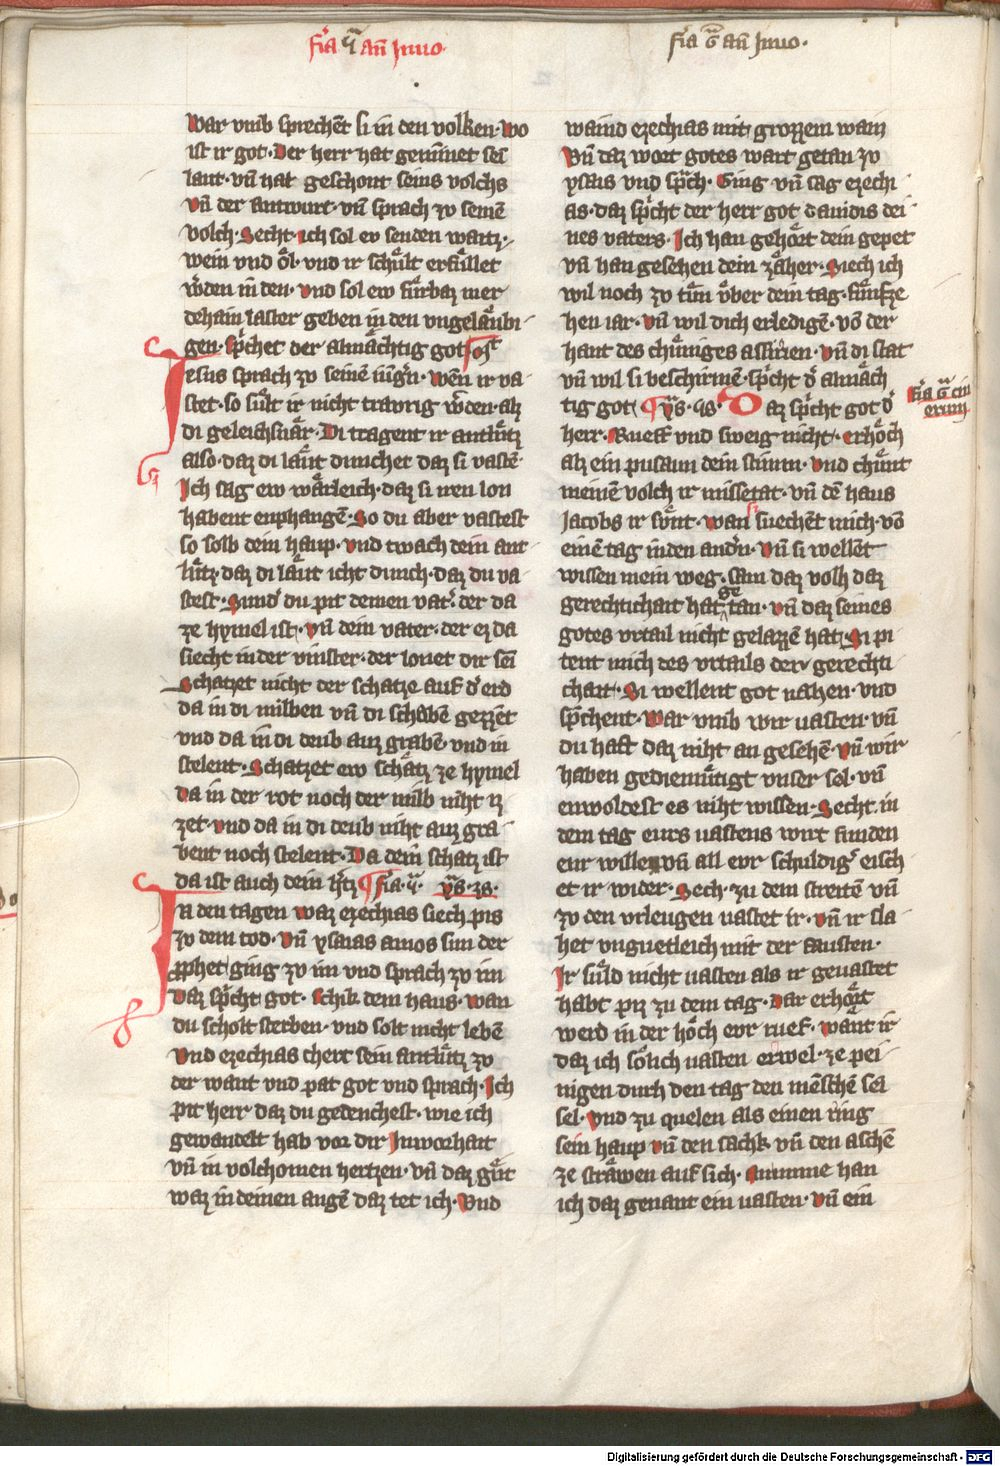 fria 4 an Inuo·
fria 6 an Inuo·
war vmb sprechēt si in den volken· wo
ist ir got· Der herr hat gemīnnet sei
laut· vn̄ hat geschont seins volchs
vn̄ der antwurt· vn̄ sprach zv seinē
volch· Secht· ich sol ev senden waitz·
wein vnd ȯl· vnd ir schu̇lt erfu̇llet
w̄den in den· vnd sol ew fu̇rbaz mer
dehain laster geben in den vngelau̇bi
gen· sp̄chet der almächtig got·
Jesus sprach zv seinē iūg'n· wēn ir va
stet· so su̇lt ir nicht trawrig w̄den· alz
di geleichsnär· Di tragent ir antlu̇tz
also· daz di läut dunchet daz si vastē·
Ich sag ew wärleich· daz si iren lon
habent enphangē· So du aber vastest
so solb dein haup· vnd twach dein ant
lu̇tz· daz di läut icht dunch· daz du va
stest· Sund' du pit deinen vat'· der da
ze hymel ist· vn̄ dein vater· der ez da
siecht in der vinster· der lonet dir sei
Schatzet nicht der schatze auf d' erd
da in di milben vn̄ di schabē gezzēt
vnd da in di deub auz grabē· vnd in
stelent· Schatzet ew schätz ze hymel
da in der rot noch der milb niht iz
zet· vnd da in di deub niht auz gra
bent noch stelent· Da dein schatz ist
da ist auch dein h'tz fria· 4· ys· 38·
In den tagen waz ezechias siech piz
zv dem tod· vn̄ ysaias amos sun der
prophet ging zv im vnd sprach zv im
Daz sp̄cht got· schik dem haus· wan
du scholt sterben· vnd solt nicht lebē
Vnd ezechias chert sein antlu̇tz zv
der want vnd pat got vnd sprach· Ich
pit herr daz du gedenchest· wie ich
gewandelt hab vor dir In worhait
vn̄ in volchomen hertzen· vn̄ daz gu̇t
waz in deinen augē daz tet ich· Vnd
waind ezechias mit grozzem wain
Vn̄ daz wort gotes wart getan zv
ysais vnd sp̄ch· Ging vn̄ sag ezechi
as· daz sp̄cht der herr got dauidis dei
nes vaters· Ich han gehȯrt dein gepet
vn̄ han gesehen dein zäher· Siech ich
wil noch zv tun v̇ber dein tag· fu̇nfze
hen iar· vn̄ wil dich erledigē· vō der
hant des chu̇niges assirien· vn̄ di stat
vn̄ wil si beschirmē· sp̄cht d' almäch
tig got· ys· 48· Daz sp̄cht got d'
fria 6 cin
erum
herr· Rueff vnd sweig nicht· erhȯch
alz ein pusaun dein stimm· vnd chu̇nt
meinē volch ir missetat· vn̄ dē haus
Jacobs ir sv̇nt· wan si suechēt mich· vō
einē tag in den and'n· vn̄ si wellēt
wissen mein weg· sam daz volh daz
gerechtichait hat getan· vn̄ daz seines
gotes vrtail nicht gelazzē hat· Si pi
tent mich des vrtails der gerechti
chait· Si wellent got nahen· vnd
sp̄chent· War vmb wir uasten· vn̄
du hast daz niht an gesehē· vn̄ wir
haben gediemu̇tigt vnser sel· vn̄
enwoldest es niht wissen· Secht in
dem tag eurs uastens wirt funden
eur wille vn̄ all evr schuldig' eisch
et ir wider· Sech· zu dem streitē vn̄
zv den vrleugen uastet ir· vn̄ ir sla
het vnguetleich mit der fausten·
Ir su̇ld nicht uasten als ir geuastet
habt piz zu dem tag· Daz erhȯrt
werd in der hȯch evr ruef· wänt ir
daz ich sȯlich uasten erwel· ze pei
nigen durch den tag den mēschē sei
sel· vnd zu quelen als einen ring
sein haup vn̄ den sachk vn̄ den aschē
ze sträwen auf sich· Numme han
ich daz genant ein uasten· vn̄ ein
Digitalisierung gefördert durch die Deutsche Forschungsgemeinschaft - DFG